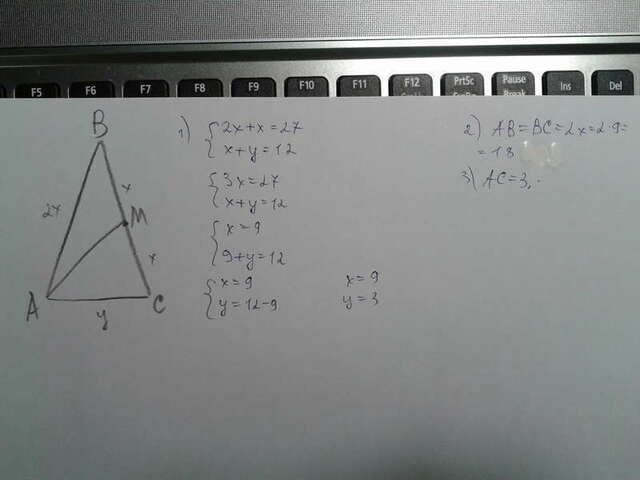 F5 F6 F7 F8 F9 F10 F11 F12 PrtSc Pause Break Ins Del
B
2x
x
M
x
A
y
C
1) { 2x+x=27
x+y=12
{ 3x=27
x+y=12
{ x=9
9+y=12
{ x=9
y=12-9
x=9
y=3
2) AB=BC=2x=2·9=
=18
3) AC=3.